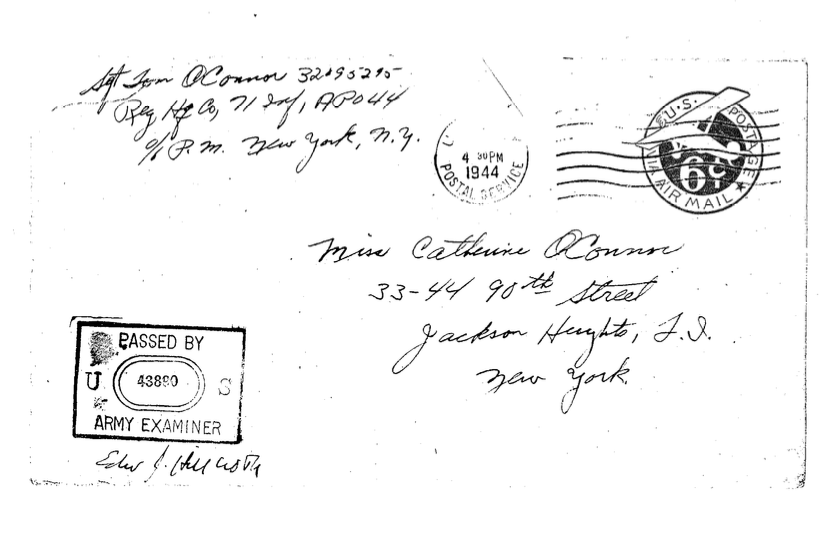 Sgt Tom O'Connor 32095295
Reg Hq Co, 71 Inf, APO 44
c/o P.M. New York, N.Y.
4 30 PM
1944
POSTAL SERVICE
U.S. POSTAGE
VIA AIR MAIL
6¢
Miss Catherine O'Connor
33-44 90th Street
Jackson Heights, L.I.
New York.
PASSED BY
U 43880 S
ARMY EXAMINER
Edw J.